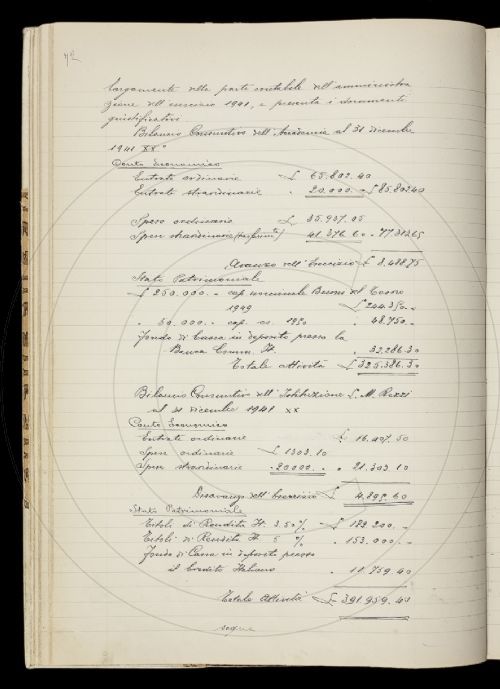 72
largamente della parte contabile dell'amministra
zione dell'esercizio 1941, e presenta i documenti
giustificativi.
Bilancio Consuntivo dell'Accademia al 31 dicembre
1941 XX°
Conto Economico
Entrate ordinarie £ 65.802.40
Entrate straordinarie " 20.000.- £ 85.802.40
Spese ordinarie £ 35.937.05
Spese straordinarie 41.376.60 - 77.313.65
Avanzo dell'Esercizio £ 8.488.75
Stato Patrimoniale
£ 250.000.- cap. nominale Buoni del Tesoro
1949 £ 244.350.-
" 50.000.- cap. es. 1950 " 48.750.-
Fondo di Cassa in deposito presso la
Banca Comm. It. " 32.286.30
Totale attività £ 325.386.30
Bilancio Consuntivo dell'Istituzione L. M. Rizzi
al 31 dicembre 1941 XX
Conto Economico
Entrate ordinarie £ 16.407.50
Spese ordinarie £ 1303.10
Spese straordinarie " 20000.- " 21.303.10
Disavanzo dell'Esercizio £ 4.895.60
Stato Patrimoniale
Titoli di Rendita It. 3.50% £ 182.200.-
Titoli di Rendita It. 5 % " 153.000.-
Fondo di Cassa in deposito presso
il Credito Italiano " 11.759.40
Totale Attività £ 391.959.40
segue